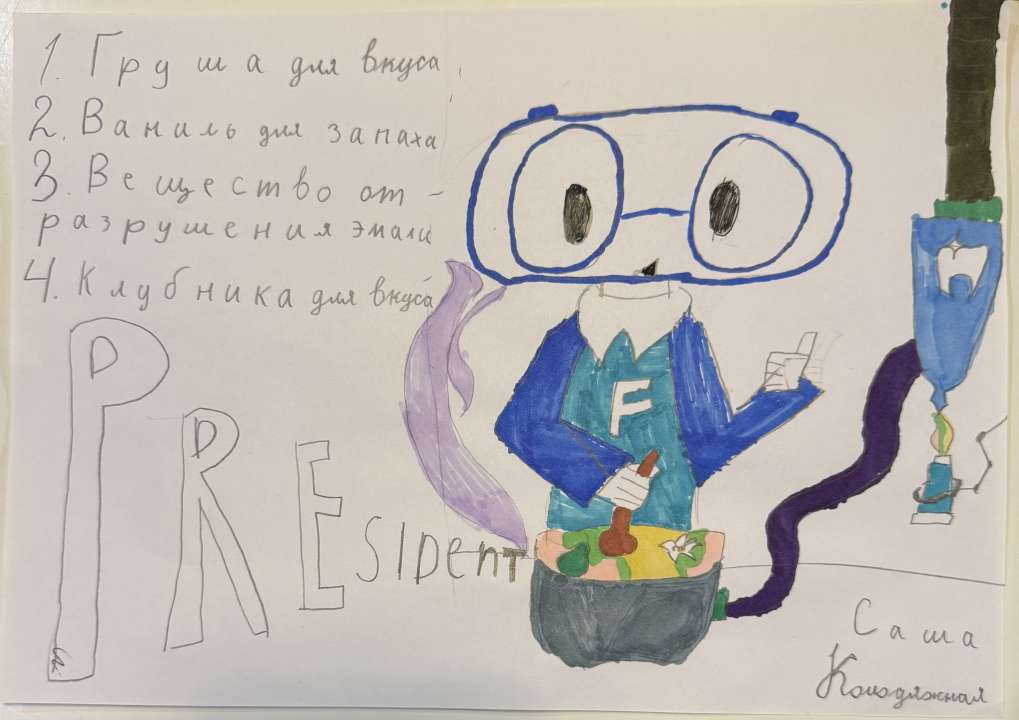 1. Груша для вкуса
2. Ваниль для запаха
3. Вещество от -
разрушения эмали
4. Клубника для вкуса
F
PResident
Саша
Колодяжная